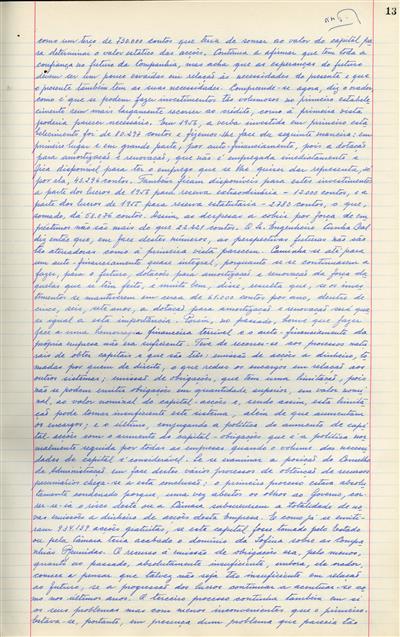 13
como um terço de 730.000 contos que teria de somar ao valor do capital pa-
ra determinar o valor estático das acções. Continua a afirmar que tem toda a
confiança no futuro da Companhia, mas acha que as esperanças do futuro
devem ser um pouco cerceadas em relação às necessidades do presente e que
o presente também tem as suas necessidades. Compreende-se agora, diz o orador
como é que se podem fazer investimentos tão volumosos no primeiro estabele-
cimento sem mais largamente recorrer ao crédito, como à primeira vista
poderia parecer necessário. Em 1956, a verba investida em primeiro esta-
belecimento foi de 80.497 contos e fizemos-lhe face da seguinte maneira: em
primeiro lugar e em grande parte, por auto-financiamento, pois a dotação
para amortização e renovação, que não é empregada imediatamente e
fica disponível para ter o emprego que se lhe quiser dar representa, só
por ela, 43.296 contos. Também ficam disponíveis para estes investimentos
a parte dos lucros de 1956 para reserva extraordinária - 12.000 contos, e a
parte dos lucros de 1955 para reserva estatutária - 2.780 contos, o que,
somado, dá 58.076 contos. Assim, as despesas a cobrir por força de em-
préstimos não são mais do que 22.421 contos. O Sr. Engenheiro Cunha Leal
diz então que, em face destes números, as perspectivas futuras não são
tão aterradoras como à primeira vista parecem. Caminha-se até para
um auto-financiamento quase integral, porquanto se se continuarem a
fazer, para o futuro, dotações para amortização e renovação da força da-
quelas que se têm feito, e muito bem, disse, resulta que, se os inves-
timentos se mantiverem em cerca de 65.000 contos por ano, dentro de
cinco, seis, sete anos, a dotação para amortização e renovação será qua-
se igual a esta importância. Porém, no passado, houve que fazer
face a uma hemorragia financeira terrível e o auto-financiamento da
própria empresa não era suficiente. Teve de recorrer-se aos processos natu-
rais de obter capitais e que são três: emissão de acções a dinheiro, to-
madas por quem de direito, o que reduz os encargos em relação aos
outros sistemas; emissão de obrigações, que tem uma limitação, pois
não se podem emitir obrigações em quantidade superior, em valor nomi-
nal, ao valor nominal do capital-acções e, sendo assim, esta limita-
ção pode tornar insuficiente este sistema, além de que aumentam
os encargos; e o sistema, conjugando a política do aumento de capi-
tal-acções com o aumento do capital-obrigações que é a política nor-
malmente seguida por todas as empresas quando o volume das necessi-
dades de capital é considerável. Se se examinar a posição do Conselho
de Administração em face destes vários processos de obtenção de recursos
pecuniários chega-se a esta conclusão: o primeiro processo estava absolu-
tamente condenado porque, uma vez abertos os olhos ao Governo, cor-
rer-se-ia o risco deste ou a Câmara subscreverem a totalidade de no-
vas emissões a dinheiro de acções desta Companhia. E como já se emiti-
ram 934.139 acções gratuitas, se este capital fosse tomado pelo Estado
ou pela Câmara teria acabado o domínio da Sofina sobre as Compa-
nhias Reunidas. O recurso à emissão de obrigações era, pelo menos,
quanto ao passado, absolutamente insuficiente, embora, ele orador,
comece a pensar que talvez não seja tão insuficiente em relação
ao futuro, se a progressão dos lucros continuar a acentuar-se co-
mo nos últimos anos. O terceiro processo continha também em si
os seus problemas mas com menos inconvenientes que o primeiro.
Estava-se, portanto, em presença dum problema que parecia tão